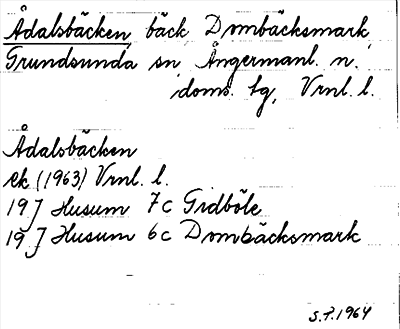 Ådalsbäcken, bäck, Dombäcksmark,
Grundsunda sn Ångermanl. n.
doms. bg, Vrnl. l.
Ådalsbäcken
ek (1963) Vrnl. l.
19 J Husum 7c Gidböle
19 J Husum 6c Dombäcksmark
S.P. 1964